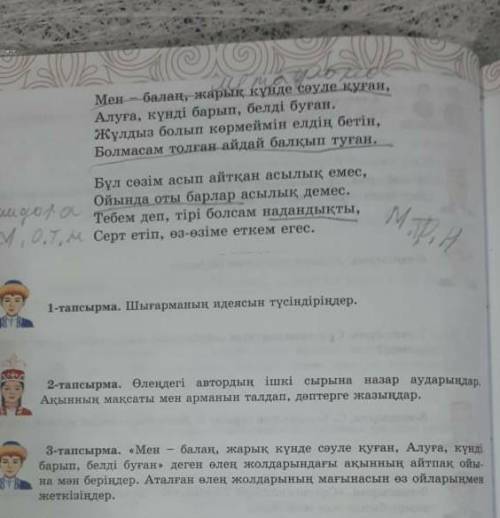 Метафора
Мен – балаң, жарық күнде сәуле қуған,
Алуға, күнді барып, белді буған.
Жұлдыз болып көрмеймін елдің бетін,
Болмасам толған айдай балқып туған.
Бұл сөзім асып айтқан асылық емес,
Ойында оты барлар асылық демес.
Тебем деп, тірі болсам надандықты,
Серт етіп, өз-өзіме еткем егес.
1-тапсырма. Шығарманың идеясын түсіндіріңдер.
2-тапсырма. Өлеңдегі автордың ішкі сырына назар аударыңдар.
Ақынның мақсаты мен арманын талдап, дәптерге жазыңдар.
3-тапсырма. «Мен – балаң, жарық күнде сәуле қуған, Алуға, күнді
барып, белді буған» деген өлең жолдарындағы ақынның айтпақ ойы-
на мән беріңдер. Аталған өлең жолдарының мағынасын өз ойларыңмен
жеткізіңдер.